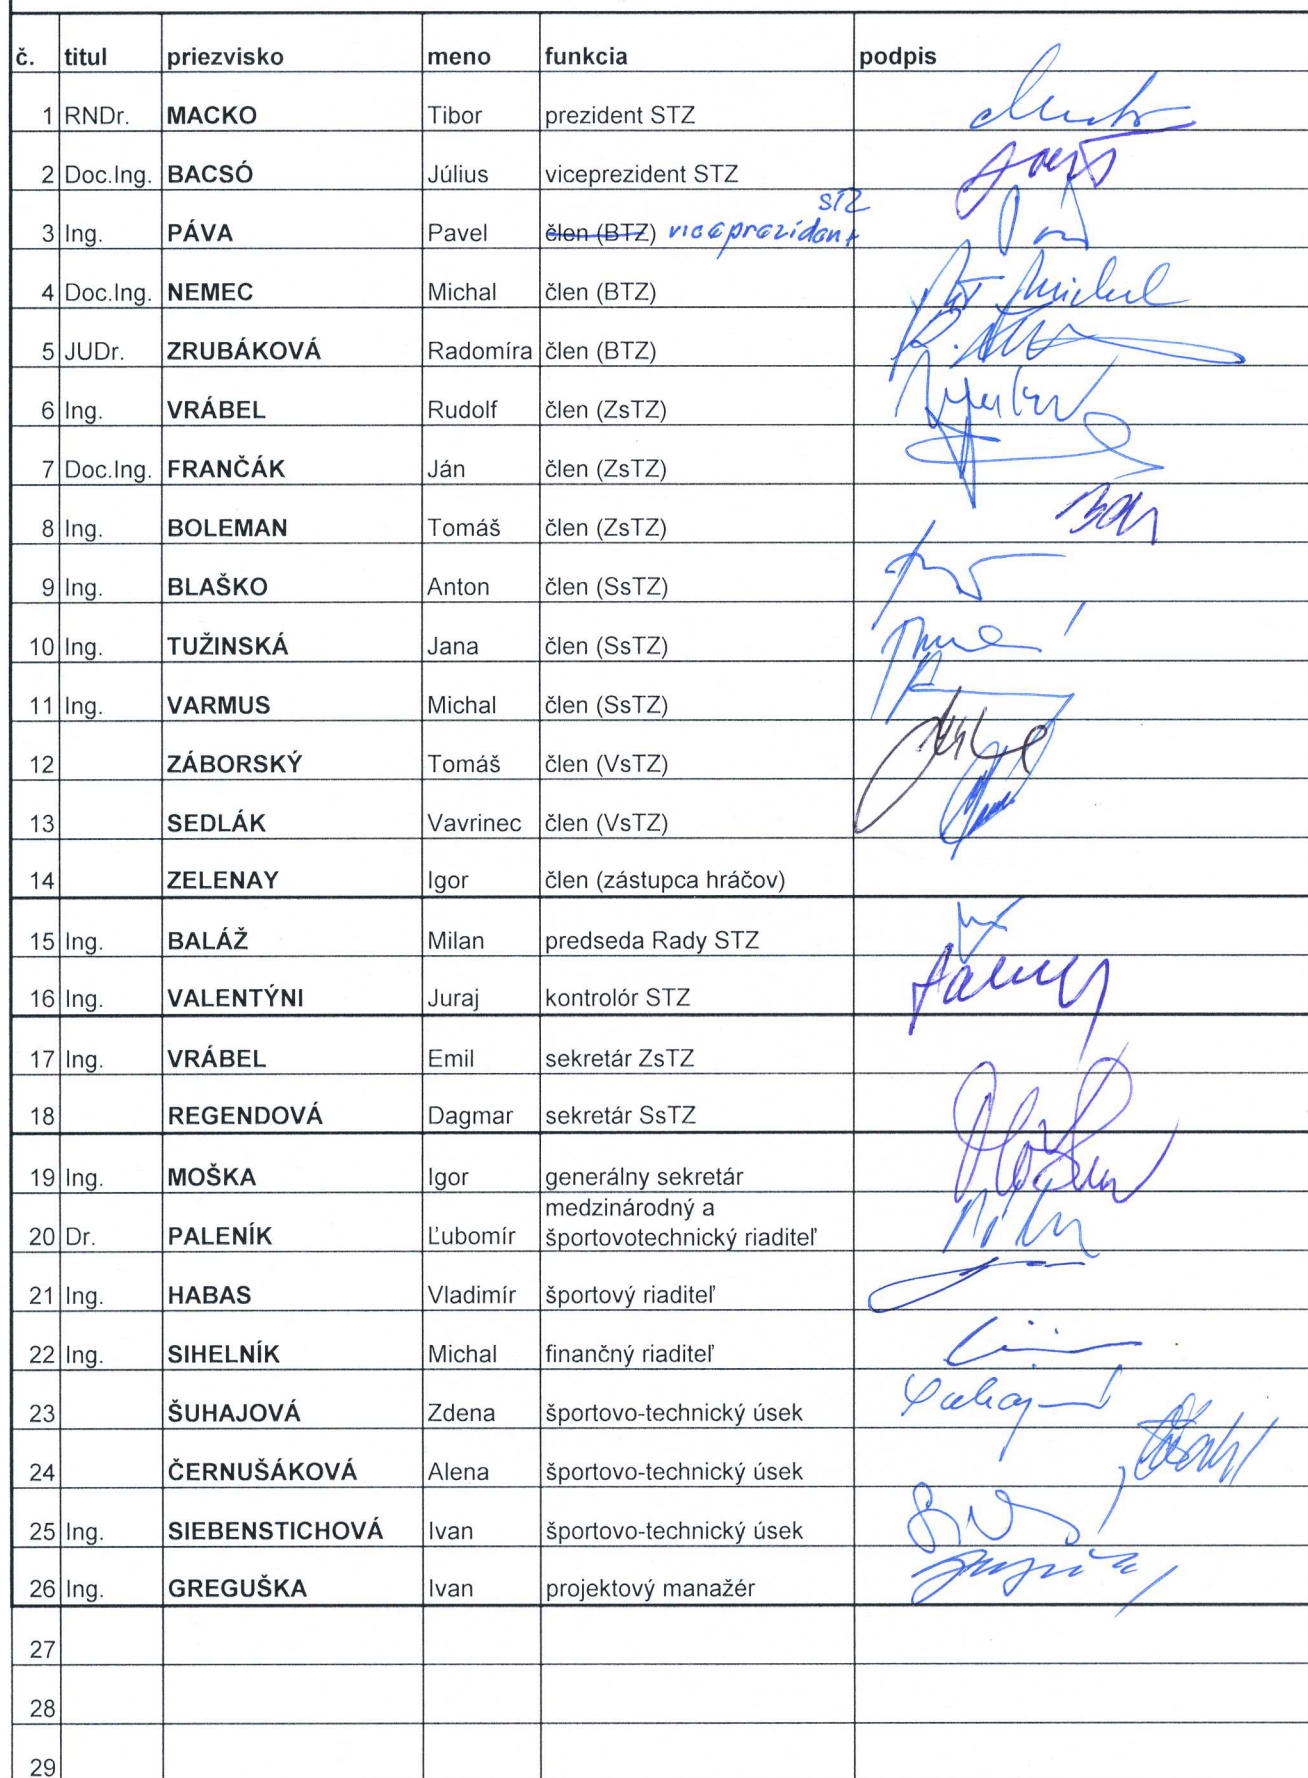 č. titul priezvisko meno funkcia podpis
1 RNDr. MACKO Tibor prezident STZ
2 Doc.Ing. BACSÓ Július viceprezident STZ
STZ
3 Ing. PÁVA Pavel člen (BTZ) viceprezident
4 Doc.Ing. NEMEC Michal člen (BTZ)
5 JUDr. ZRUBÁKOVÁ Radomíra člen (BTZ)
6 Ing. VRÁBEL Rudolf člen (ZsTZ)
7 Doc.Ing. FRANČÁK Ján člen (ZsTZ)
8 Ing. BOLEMAN Tomáš člen (ZsTZ)
9 Ing. BLAŠKO Anton člen (SsTZ)
10 Ing. TUŽINSKÁ Jana člen (SsTZ)
11 Ing. VARMUS Michal člen (SsTZ)
12 ZÁBORSKÝ Tomáš člen (VsTZ)
13 SEDLÁK Vavrinec člen (VsTZ)
14 ZELENAY Igor člen (zástupca hráčov)
15 Ing. BALÁŽ Milan predseda Rady STZ
16 Ing. VALENTÝNI Juraj kontrolór STZ
17 Ing. VRÁBEL Emil sekretár ZsTZ
18 REGENDOVÁ Dagmar sekretár SsTZ
19 Ing. MOŠKA Igor generálny sekretár
medzinárodný a
20 Dr. PALENÍK Ľubomír športovotechnický riaditeľ
21 Ing. HABAS Vladimír športový riaditeľ
22 Ing. SIHELNÍK Michal finančný riaditeľ
23 ŠUHAJOVÁ Zdena športovo-technický úsek
24 ČERNUŠÁKOVÁ Alena športovo-technický úsek
25 Ing. SIEBENSTICHOVÁ Ivan športovo-technický úsek
26 Ing. GREGUŠKA Ivan projektový manažér
27
28
29